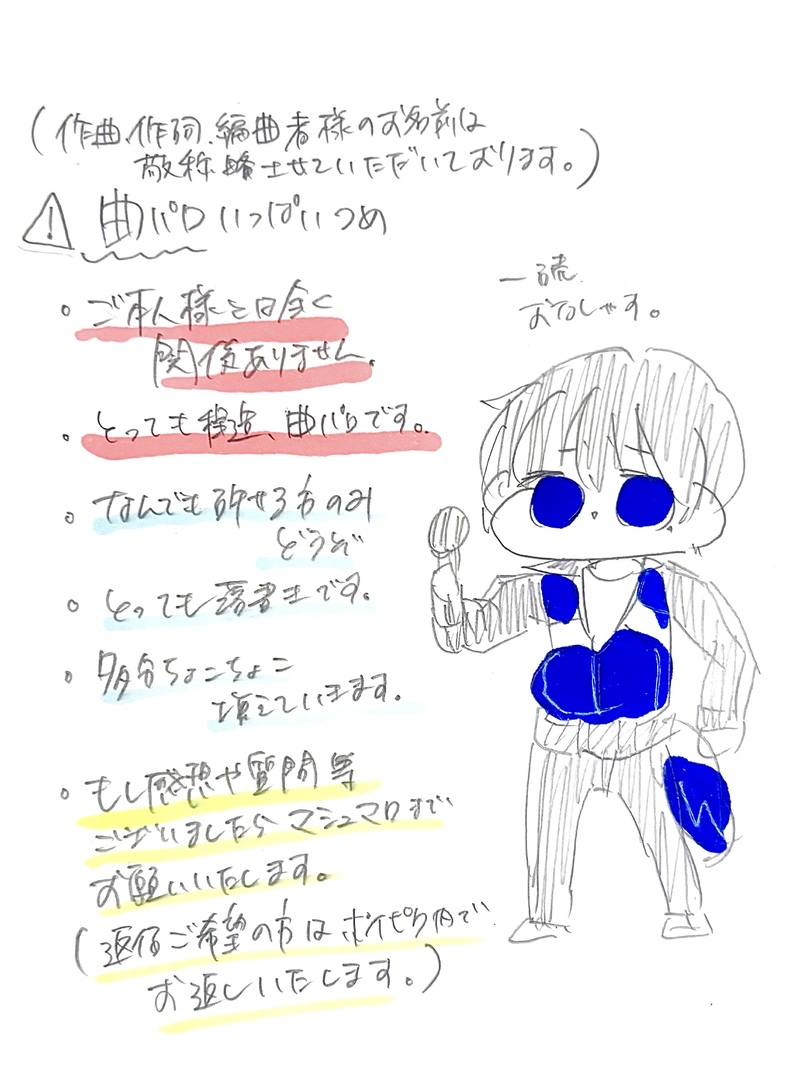 (作曲、作詞、編曲者様のお名前は
敬称略させていただいております。)
⚠ 曲パロいっぱいつめ
一読
おなしゃす。
。ご本人様とは全く
関係ありません。
。とっても 、曲パロです。
。なんでも許せる方のみ
どうぞ
。とっても落書きです。
。多分ちょこちょこ
増えていきます。
。もし感想や質問等
ございましたらマシュマロまで
お願いいたします。
(返信ご希望の方はポイピク内で
お返しいたします。)
W